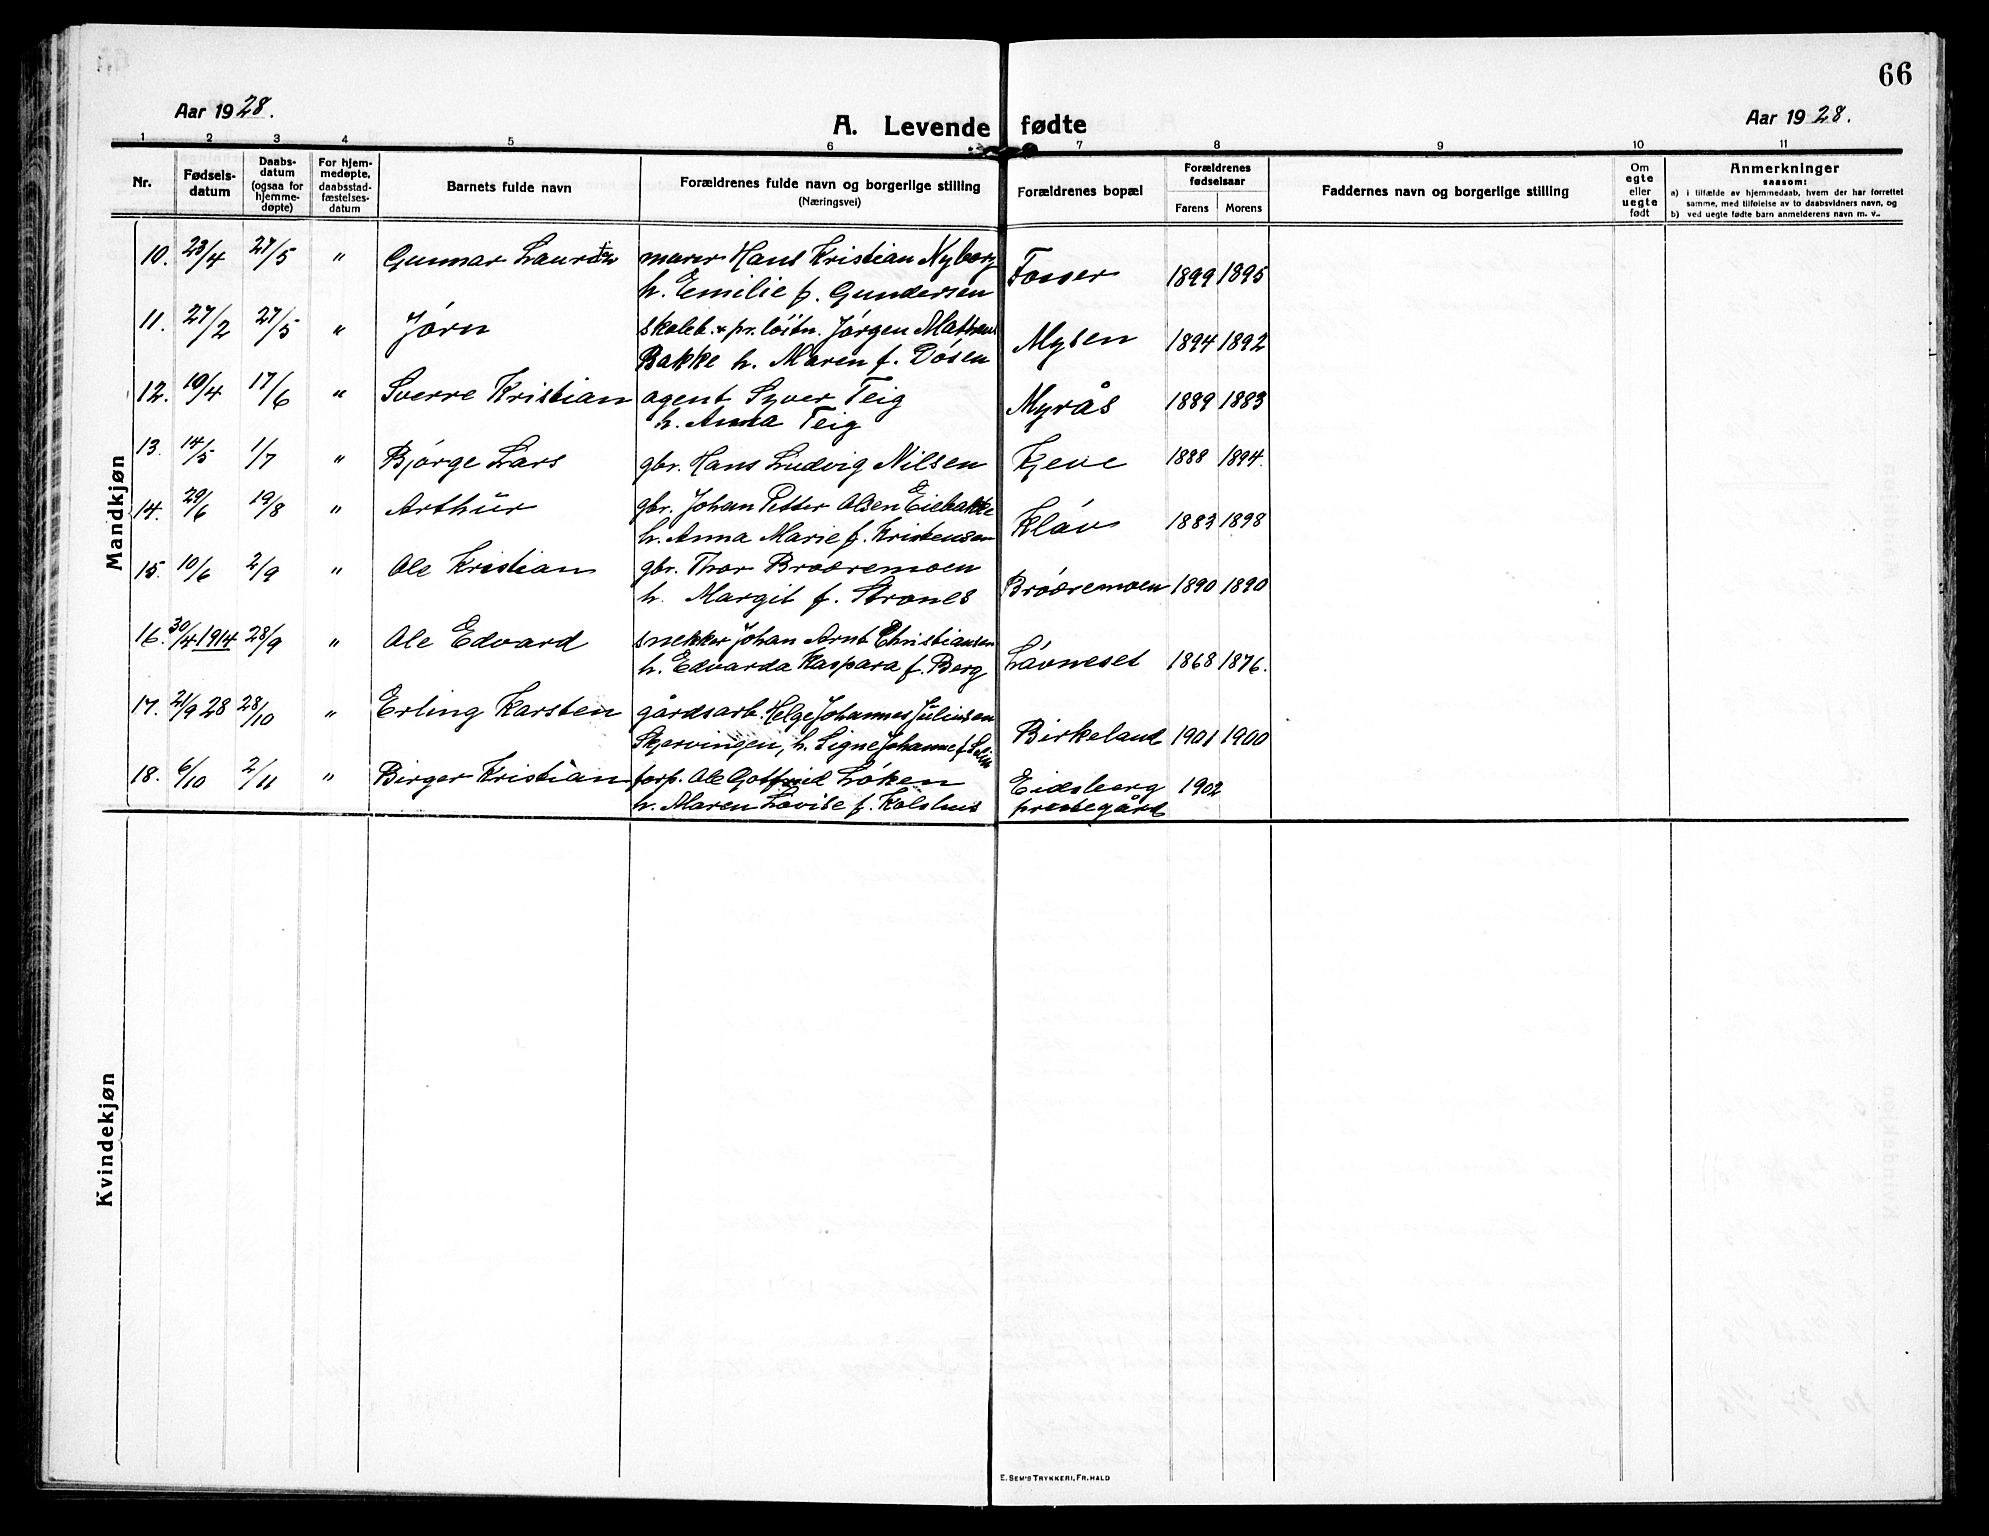 66
Aar 1928.
Aar 1928.
A. Levende fødte
1 2 3 4 5 6 7 8 9 10 11
Nr.
Fødsels-
datum
Daabs-
datum
(ogsaa for
hjemme-
døpte)
For hjem-
medøpte,
daabsstad-
fæstelses-
datum
Barnets fulde navn
Forældrenes fulde navn og borgerlige stilling
(Næringsvei)
Forældrenes bopæl
Forældrenes
fødselsaar
Farens Morens
Faddernes navn og borgerlige stilling
Om
egte
eller
uegte
født
Anmerkninger
saasom:
a) i tilfælde av hjemmedaab, hvem der har forrettet
samme, med tilføielse av to daabsvidners navn, og
b) ved uegte fødte barn anmelderens navn m. v.
Mandkjøn
10. 23/4 27/5 " Gunnar murer Hans Kristian Nyborg
h. Emilie f. Gundersen Fosser 1899 1895
11. 27/2 27/5 " Jörn skoleb. + pr. löitn. Jörgen
Bakke h. Maren f. Dösen Mysen 1894 1892
12. 19/4 17/6 " Sverre Kristian agent Syver Teig
h. Anna Teig Myrås 1889 1883
13. 14/5 1/7 " Björge Lars gbr. Hans Ludvig Nilsen 1888 1894.
14. 29/6 19/8 " Arthur gbr. Johan Petter Olsen Eiebakke
h. Anna Marie f. Kristensen Kláv 1883 1898
15. 10/6 2/9 " Ole Kristian gbr. Thor
h. Margit f. Strönes 1890 1890
16. 30/4 1914 28/9 " Ole Edvard snekker Johan Arnt Christiansen
h. Edvarda Kaspara f. Berg Lávneset 1868 1876.
17. 21/9 28 28/10 " Erling Karsten gårdsarb. Helge Johannes Juliusen
Skjervingen, h. Signe Johanne f. Birkeland 1901 1900
18. 6/10 2/11 " Birger Kristian forp. Ole Gotfried Löken
h. Maren Lovise f. Kolshus Eidsberg
prestegård 1902
Kvindekjøn
E. SEM'S TRYKKERI, FR.HALD